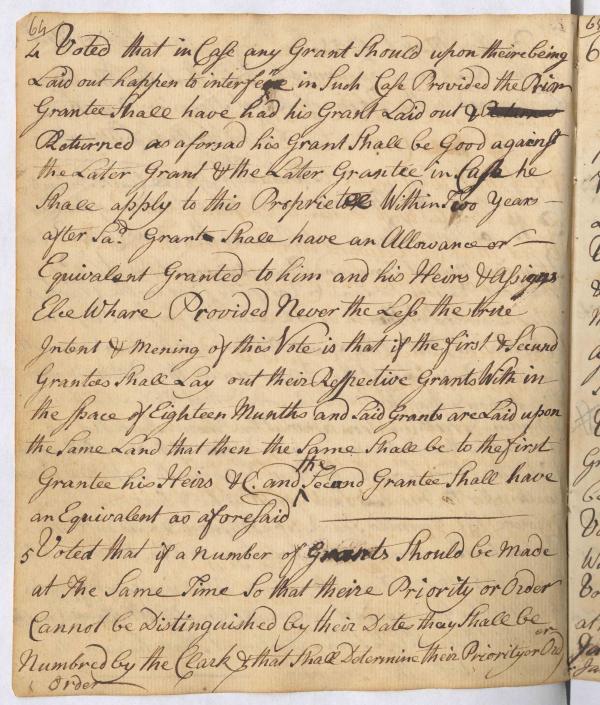 64
4 Voted that in Case any Grant Should upon theire being
Laid out happen to interfere in Such Case Provided the Prior
Grantee Shall have had his Grant Laid out &
Returned as aforsad his Grant Shall be Good against
the Later Grant & the Later Grantee in Case he
Shall apply to this Proprietors Within Two Years –
after Sad. Grant Shall have an Allowance or –
Equivalent Granted to him and his Heirs & Assigns
Elce Whare Provided Never the Less the true
Intent & Mening of this Vote is that if the first & Secund
Grantees Shall Lay out their Respective Grants With in
the Space of Eighteen Munths and Said Grants are Laid upon
the Same Land that then the Same Shall be to the first
Grantee his Heirs &C. and the Secund Grantee Shall have
an Equivalent as aforesaid
5 Voted that if a Number of Grants Should be Made
at The Same Time So that theire Priority or Order
Cannot be Distinguished by their Dates thay Shall be
Numbred by the Clark & that Shall Determine their Priority or
Order